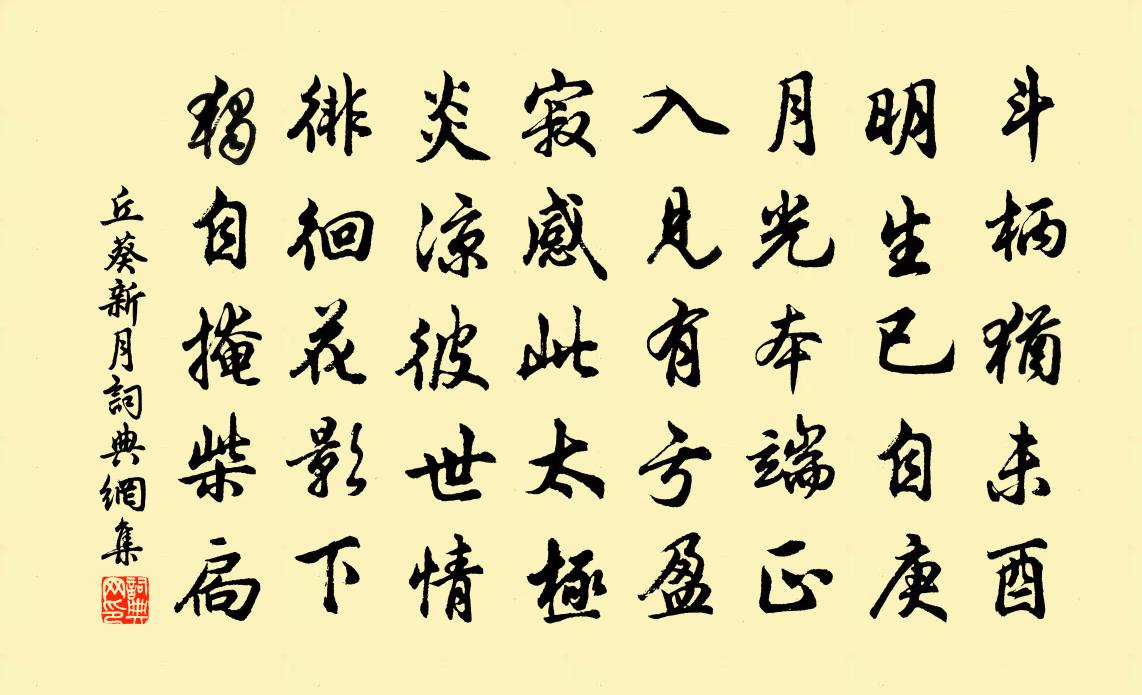 斗柄猶未酉
明生已自庚
月光本端正
入見有亏盈
寂感此太極
炎凉彼世情
徘徊花影下
獨自掩柴扃
丘葵新月詞典網集